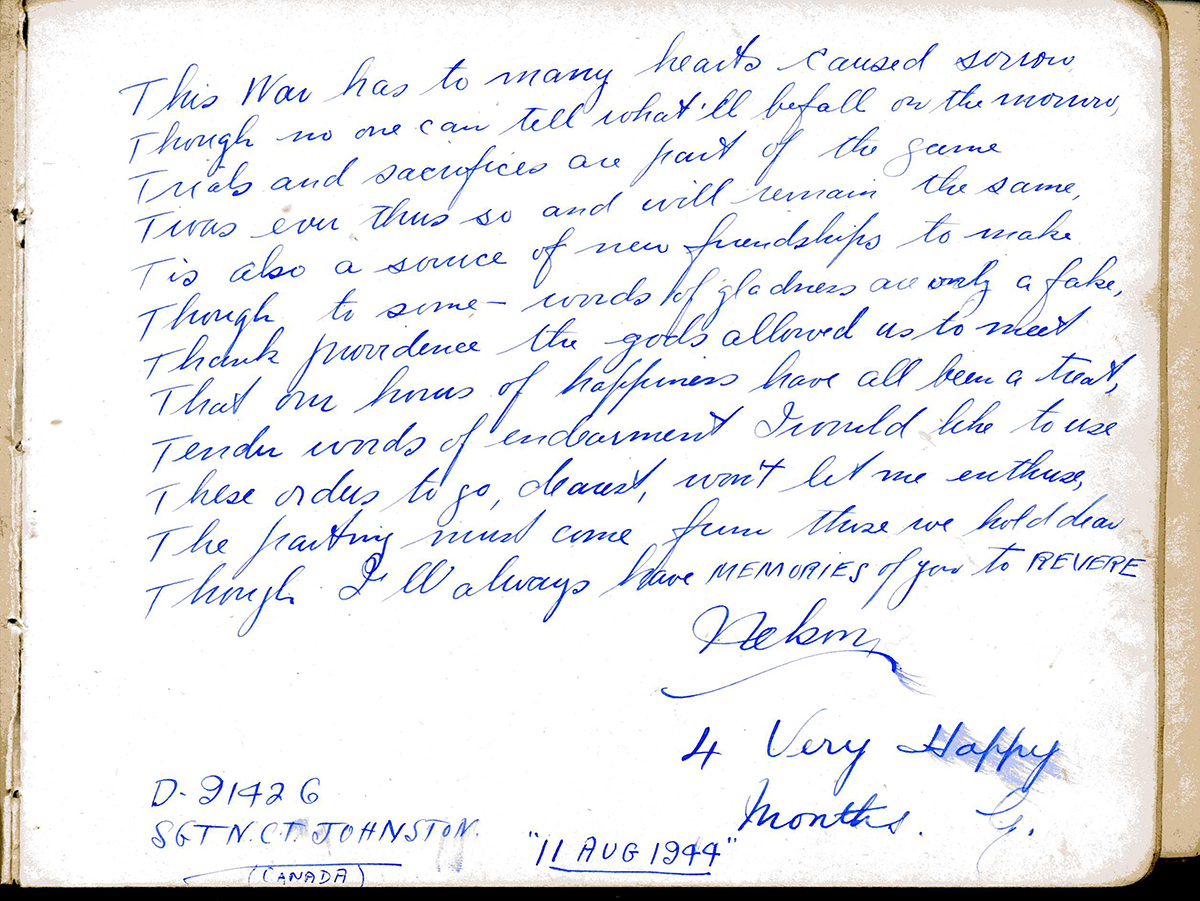 This War has to many hearts caused sorrow
Though no one can tell what'll befall on the morrow,
Trials and sacrifices are part of the game
Twas ever thus so and will remain the same,
Tis also a source of new friendships to make
Though to some – words of gladness are only a fake,
Thank providence the gods allowed us to meet
That our hours of happiness have all been a treat,
Tender words of endearment I would like to use
These orders to go, dearest, won't let me enthuse,
The parting must come from those we hold dear
Though I'll always have MEMORIES of you to REVERE
Nelson
4 Very Happy
Months. G.
D-91426
SGT N.C.T. JOHNSTON.
(CANADA)
"11 AUG 1944"